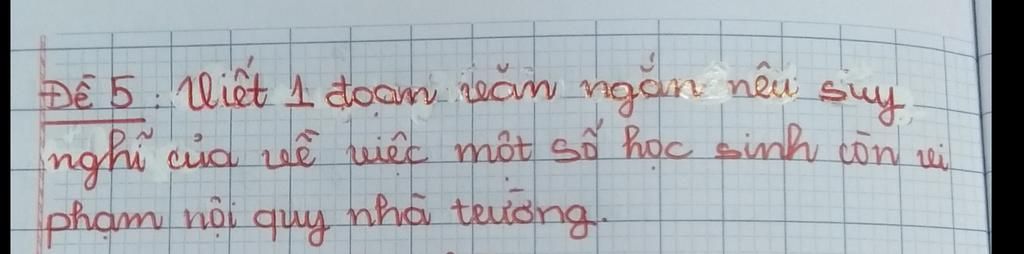 Đề 5: Viết 1 đoạn văn ngắn nêu suy
nghĩ của về việc một số học sinh còn vi
phạm nội quy nhà trường.